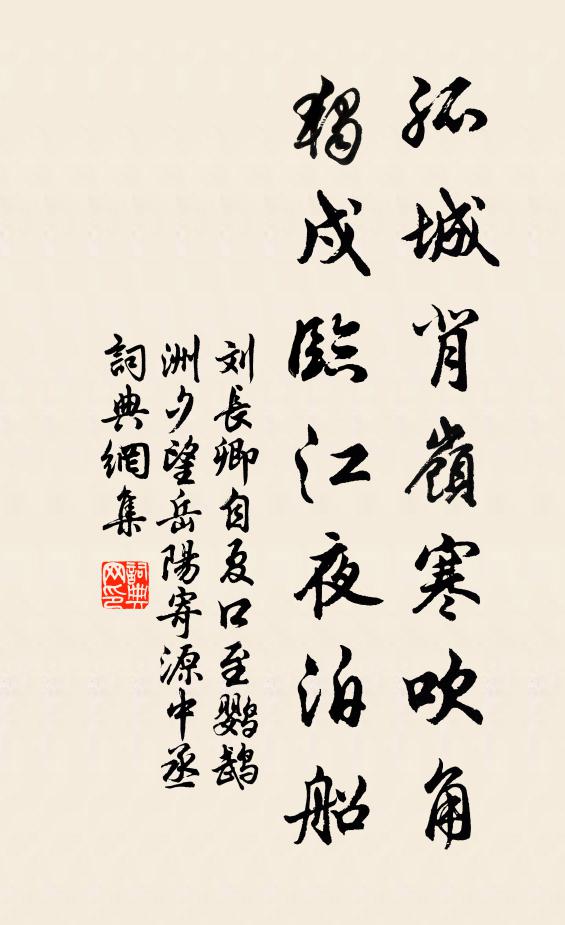 孤城背嶺寒吹角
獨戍臨江夜泊船
刘長卿自夏口至鸚鵡
洲夕望岳陽寄源中丞
詞典網集
詞典
网印